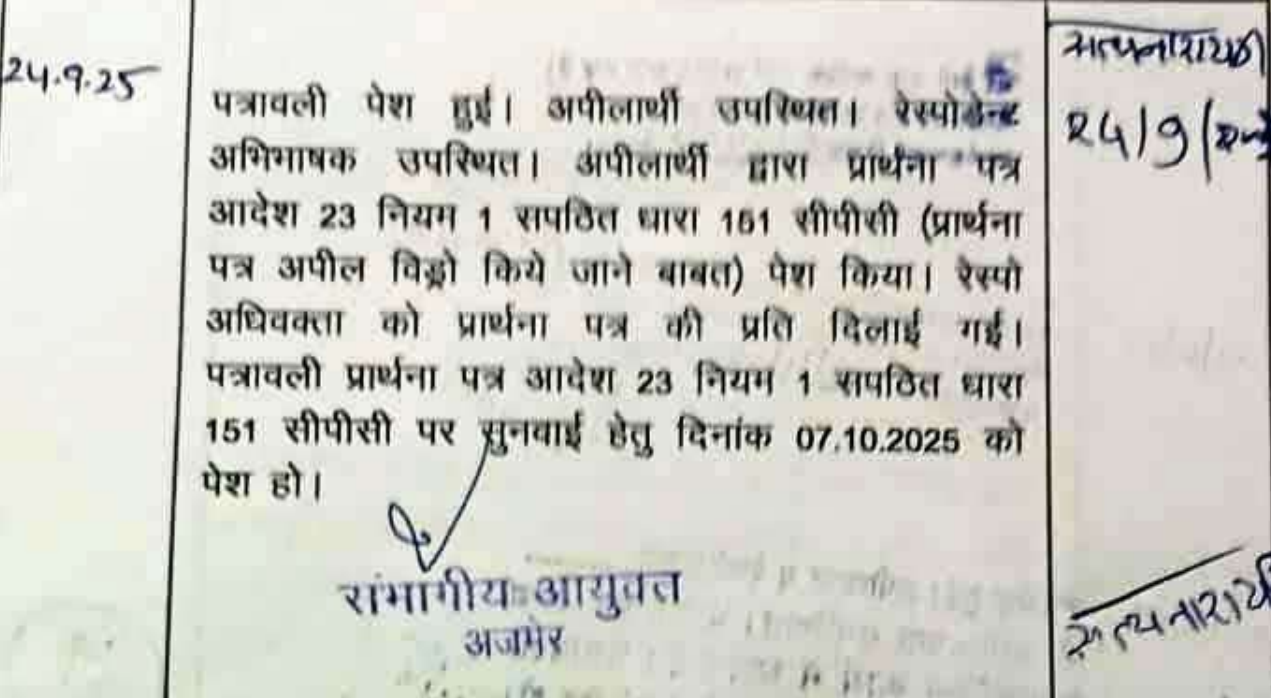 24.9.25
सत्यनारायण
24/9/
पत्रावली पेश हुई। अपीलार्थी उपस्थित। रेस्पोडेन्ट
अभिभाषक उपस्थित। अपीलार्थी द्वारा प्रार्थना पत्र
आदेश 23 नियम 1 सपठित धारा 151 सीपीसी (प्रार्थना
पत्र अपील विड्रो किये जाने बाबत) पेश किया। रेस्पो
अधिवक्ता को प्रार्थना पत्र की प्रति दिलाई गई।
पत्रावली प्रार्थना पत्र आदेश 23 नियम 1 सपठित धारा
151 सीपीसी पर सुनवाई हेतु दिनांक 07.10.2025 को
पेश हो।
संभागीय आयुक्त
अजमेर
सत्यनाराय